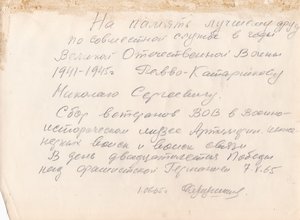 На память лучшему другу
по совместной службе в годы
Великой Отечественной Войны
1941-1945г
Николаю Сергеевичу.
Сбор ветеранов ВОВ в Военно-
историческом музее Артиллерии инже
нерных войск и войск связи
В день двадцатилетия Победы
над фашистской Германией 7.V.65